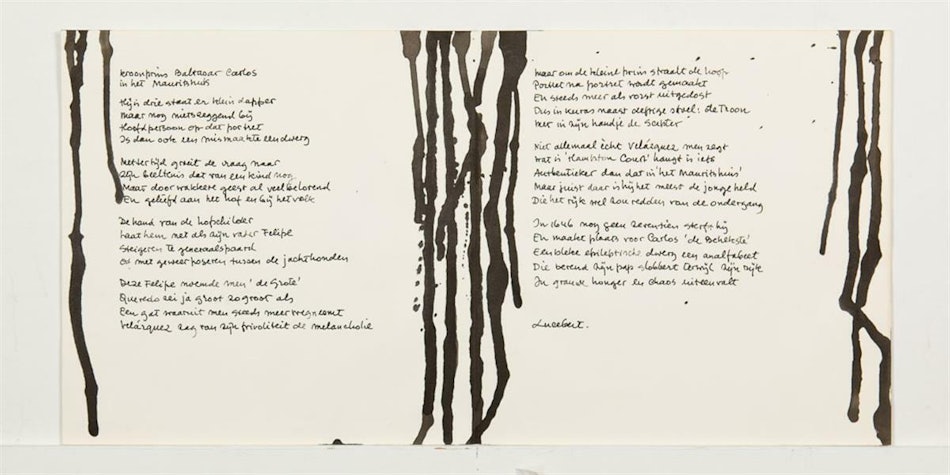 kroonprins Baltasar Carlos
in het Mauritshuis
Hij is drie staat er klein dapper
maar nog nietszeggend bij
Hoofdpersoon op dat portret
Is dan ook een mismaakte eendwerg
Mettertijd groeit de vraag naar
Zijn beeltenis dat van een kind nog
Maar door wakkere geest al veelbelovend
En geliefd aan het hof en bij het volk
De hand van de hofschilder
Laat hem net als zijn vader Felipe
Steigeren te generaalspaard
Of met geweer poseren tussen de jachthonden
Deze Felipe noemde men 'de Grote'
Quevedo zei ja groot zo groot als
Een gat waaruit men steeds meer wegneemt
Velázquez zag van zijn frivoliteit de melancholie
Maar om de kleine prins straalt de hoop
Portret na portret wordt gemaakt
En steeds meer als vorst uitgedost
Dus in kuras naast deftige stoel: de troon
Met in zijn handje de scepter
Niet allemaal ècht Velázquez men zegt
wat in 'Hampton Court' hangt is iets
Authentieker dan dat in 'het Mauritshuis'
Maar juist daar is hij het meest de jonge held
Die het rijk stel zou redden van de ondergang
In 1646 nog geen zeventien sterft hij
En maakt plaats voor Carlos 'de Behekste'
Een bleke epileptische dwerg een analfabeet
Die bevend zijn pap slobbert terwijl zijn rijk
In grauwe honger en chaos uiteenvalt
Lucebert.